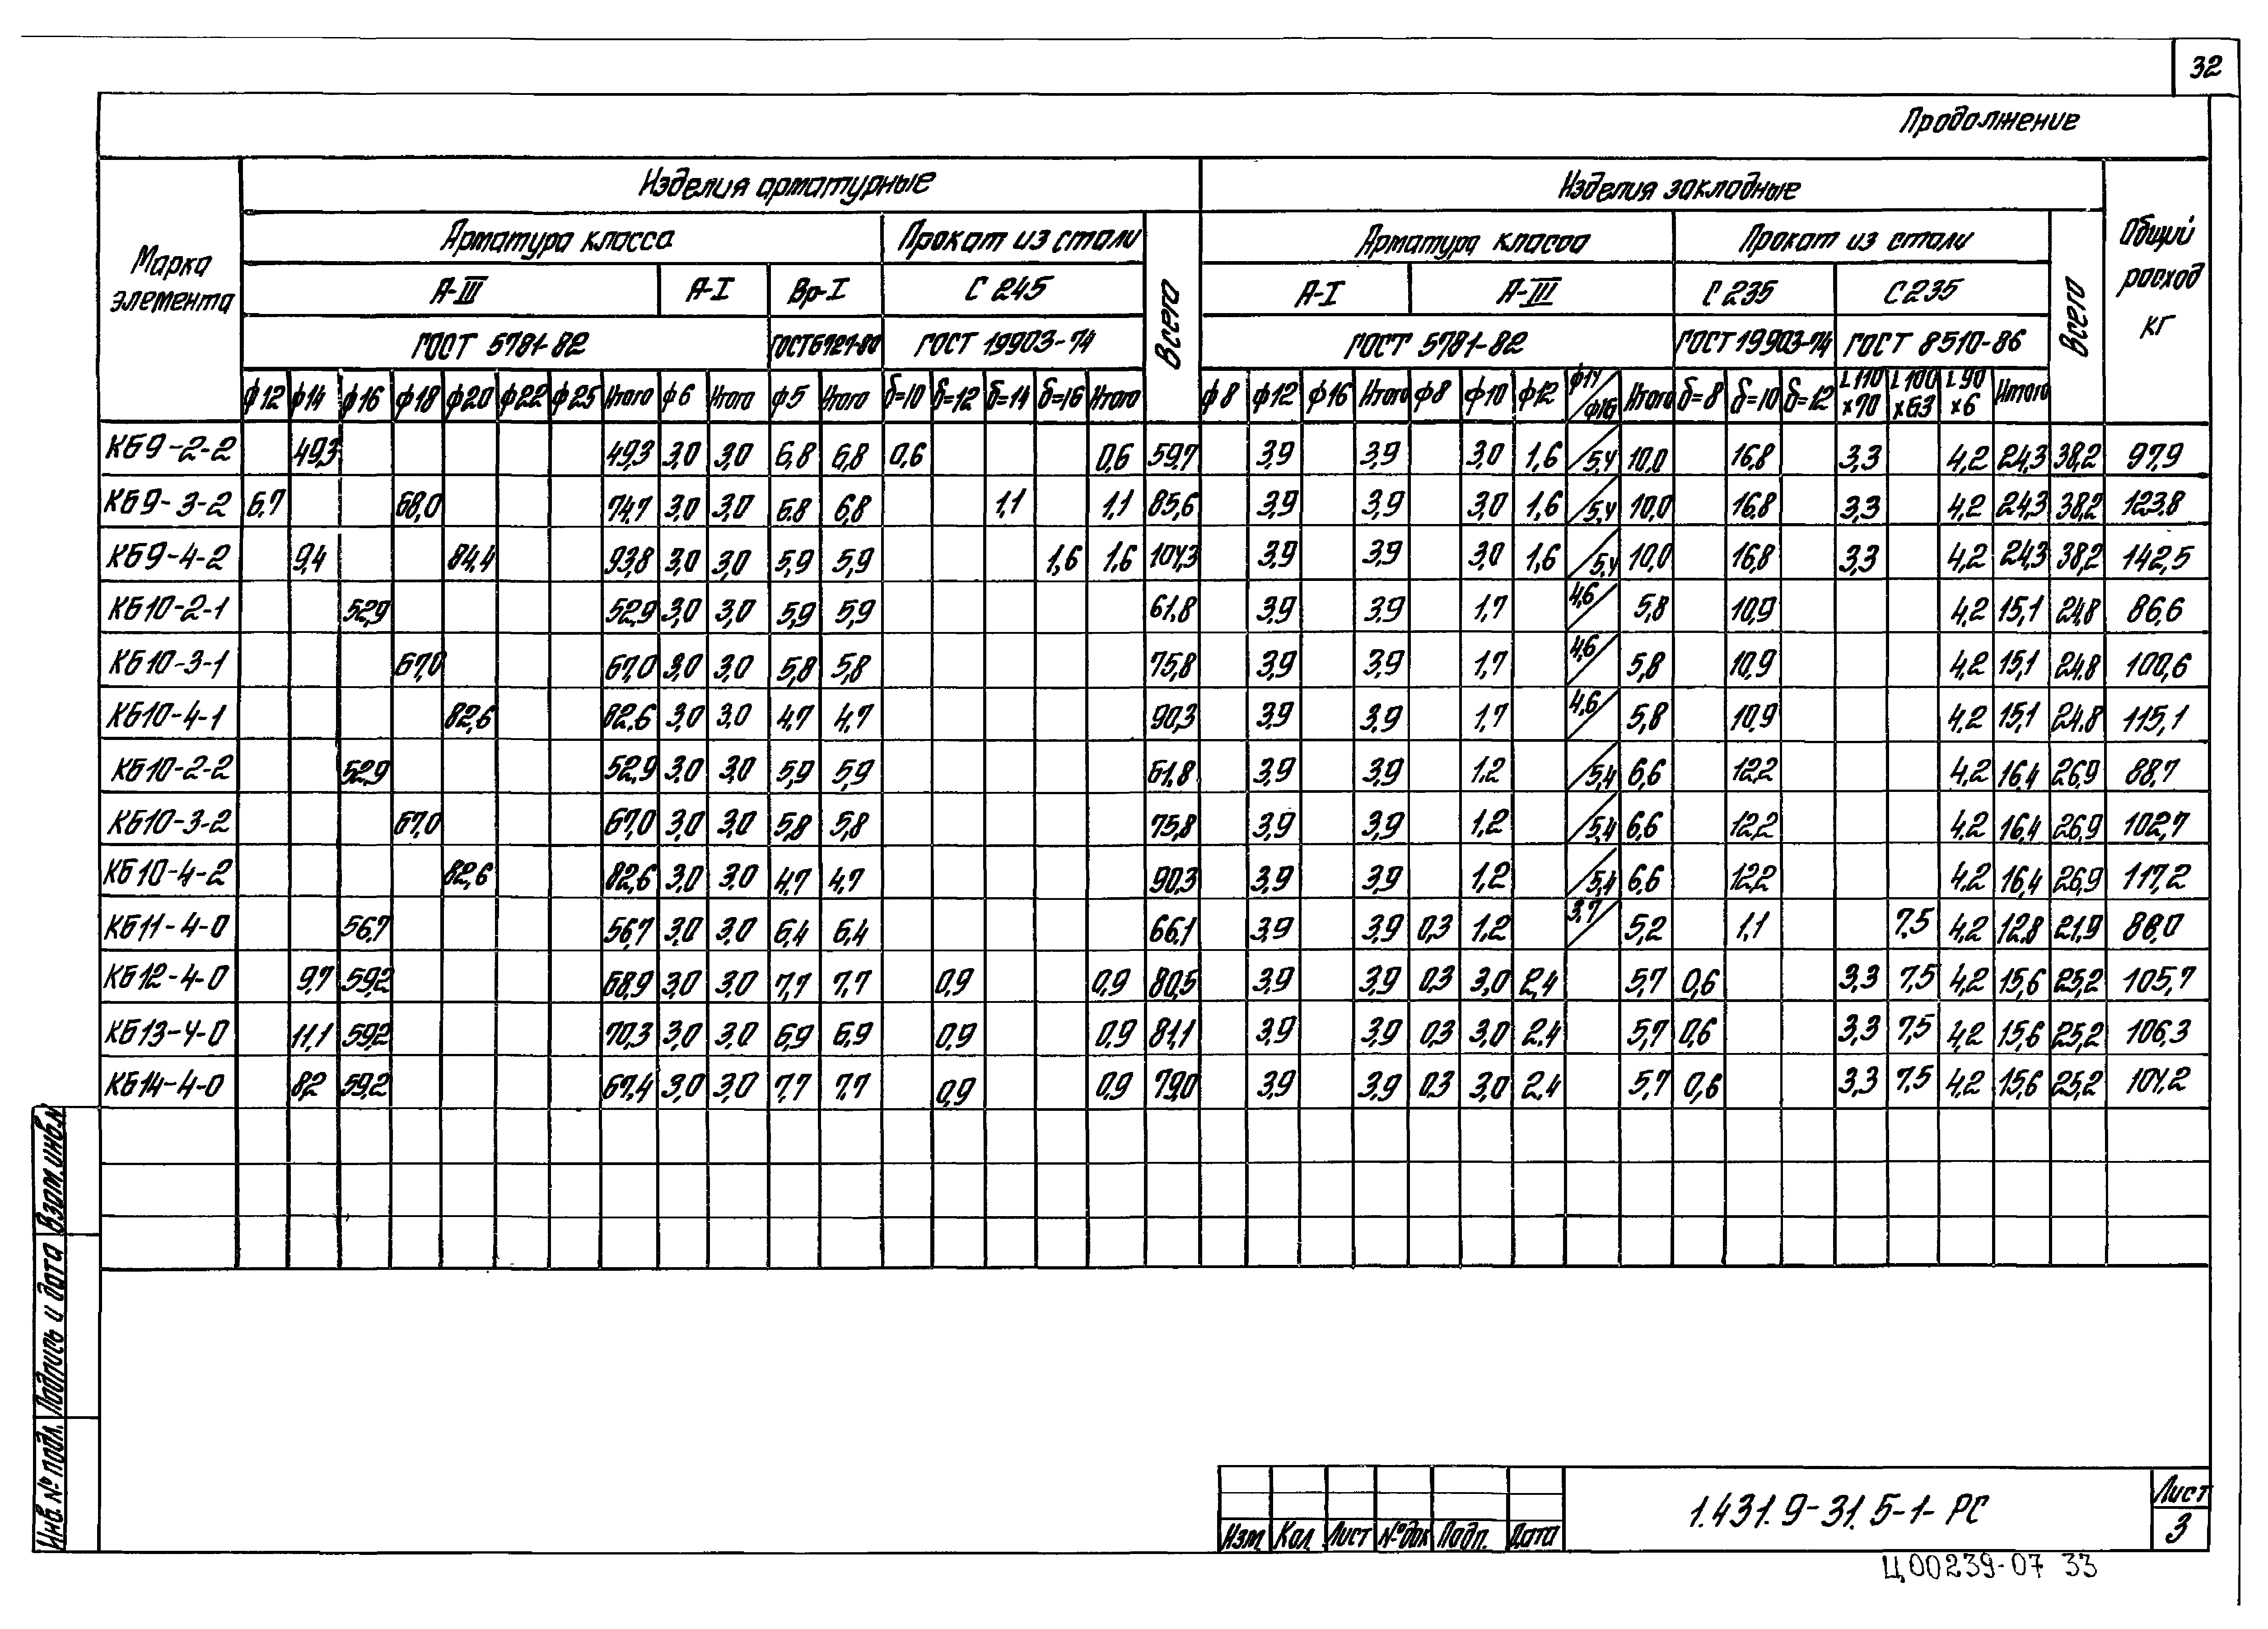 32
Продолжение
Марка элемента
Изделия арматурные
Изделия закладные
Общий расход кг
Арматура класса
Прокат из стали
Всего
Арматура класса
Прокат из стали
Всего
А-III А-I Вр-I С 245 А-I А-III С 235 С 235
ГОСТ 5781-82 ГОСТ 6727-80 ГОСТ 19903-74 ГОСТ 5781-82 ГОСТ 19903-74 ГОСТ 8510-86
ф12 ф14 ф16 ф18 ф20 ф22 ф25 Итого ф6 Итого ф5 Итого δ=10 δ=12 δ=14 δ=16 Итого ф8 ф12 ф16 Итого ф8 ф10 ф12 ф14/ф16 Итого δ=8 δ=10 δ=12 L110x70 L100x63 L90x6 Итого
КБ9-2-2 49,3 49,3 3,0 3,0 6,8 6,8 0,6 0,6 59,7 3,9 3,9 3,0 1,6 /5,4 10,0 16,8 3,3 4,2 24,3 38,2 97,9
КБ9-3-2 6,7 68,0 74,7 3,0 3,0 6,8 6,8 1,1 1,1 85,6 3,9 3,9 3,0 1,6 /5,4 10,0 16,8 3,3 4,2 24,3 38,2 123,8
КБ9-4-2 9,4 84,4 93,8 3,0 3,0 5,9 5,9 1,6 1,6 104,3 3,9 3,9 3,0 1,6 /5,4 10,0 16,8 3,3 4,2 24,3 38,2 142,5
КБ10-2-1 52,9 52,9 3,0 3,0 5,9 5,9 61,8 3,9 3,9 1,7 4,6/ 5,8 10,9 4,2 15,1 24,8 86,6
КБ10-3-1 67,0 67,0 3,0 3,0 5,8 5,8 75,8 3,9 3,9 1,7 4,6/ 5,8 10,9 4,2 15,1 24,8 100,6
КБ10-4-1 82,6 82,6 3,0 3,0 4,7 4,7 90,3 3,9 3,9 1,7 4,6/ 5,8 10,9 4,2 15,1 24,8 115,1
КБ10-2-2 52,9 52,9 3,0 3,0 5,9 5,9 61,8 3,9 3,9 1,2 /5,4 6,6 12,2 4,2 16,4 26,9 88,7
КБ10-3-2 67,0 67,0 3,0 3,0 5,8 5,8 75,8 3,9 3,9 1,2 /5,4 6,6 12,2 4,2 16,4 26,9 102,7
КБ10-4-2 82,6 82,6 3,0 3,0 4,7 4,7 90,3 3,9 3,9 1,2 /5,4 6,6 12,2 4,2 16,4 26,9 117,2
КБ11-4-0 56,7 56,7 3,0 3,0 6,4 6,4 66,1 3,9 3,9 0,3 1,2 3,7/ 5,2 1,1 7,5 4,2 12,8 21,9 88,0
КБ12-4-0 9,7 59,2 68,9 3,0 3,0 7,7 7,7 0,9 0,9 80,5 3,9 3,9 0,3 3,0 2,4 5,7 0,6 3,3 7,5 4,2 15,6 25,2 105,7
КБ13-4-0 11,1 59,2 70,3 3,0 3,0 6,9 6,9 0,9 0,9 81,1 3,9 3,9 0,3 3,0 2,4 5,7 0,6 3,3 7,5 4,2 15,6 25,2 106,3
КБ14-4-0 8,2 59,2 67,4 3,0 3,0 7,7 7,7 0,9 0,9 79,0 3,9 3,9 0,3 3,0 2,4 5,7 0,6 3,3 7,5 4,2 15,6 25,2 104,2
Взам.инв.№
Подпись и дата
Инв. № подл.
Изм. Кол. Лист №док Подп. Дата
1.431.9-31.5-1-РС
Лист
3
Ц00239-07 33